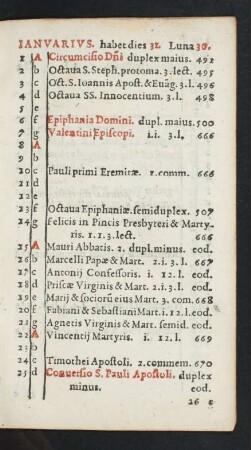 IANVARIVS. habet dies 31. Luna 30.
1 A Circumcisio Dñi duplex maius. 491
2 b Octaua S. Steph. protoma. 3. lect. 495
3 c Oct. S. Ioannis Apost. & Euãg. 3. l. 496
4 d Octaua SS. Innocentium. 3. l. 498
5 e
6 f Epiphania Domini. dupl. maius. 500
7 g Valentini Episcopi. i.i. 3. l. 666
8 A
9 b
10 c Pauli primi Eremitæ. 1. comm. 666
11 d
12 e
13 f Octaua Epiphaniæ. semiduplex. 507
14 g Felicis in Pincis Presbyteri & Marty-
ris. 1. 1. 3. lect. 666
15 A Mauri Abbatis. 2. dupl. minus. eod.
16 b Marcelli Papæ & Mart. 2. i. 3. l. 667
17 c Antonij Confessoris. i. 12. l. eod.
18 d Priscæ Virginis & Mart. 2. i. 3. l. eod.
19 e Marij & sociorũ eius Mart. 3. com. 668
20 f Fabiani & Sebastiani Mart. i. 12. l. eod
21 g Agnetis Virginis & Mart. semid. eod.
22 A Vincentij Martyris. i. 12. l. 669
23 b
24 c Timothei Apostoli. 2. commem. 670
25 d Conuersio S. Pauli Apostoli. duplex
minus. eod.
26 e